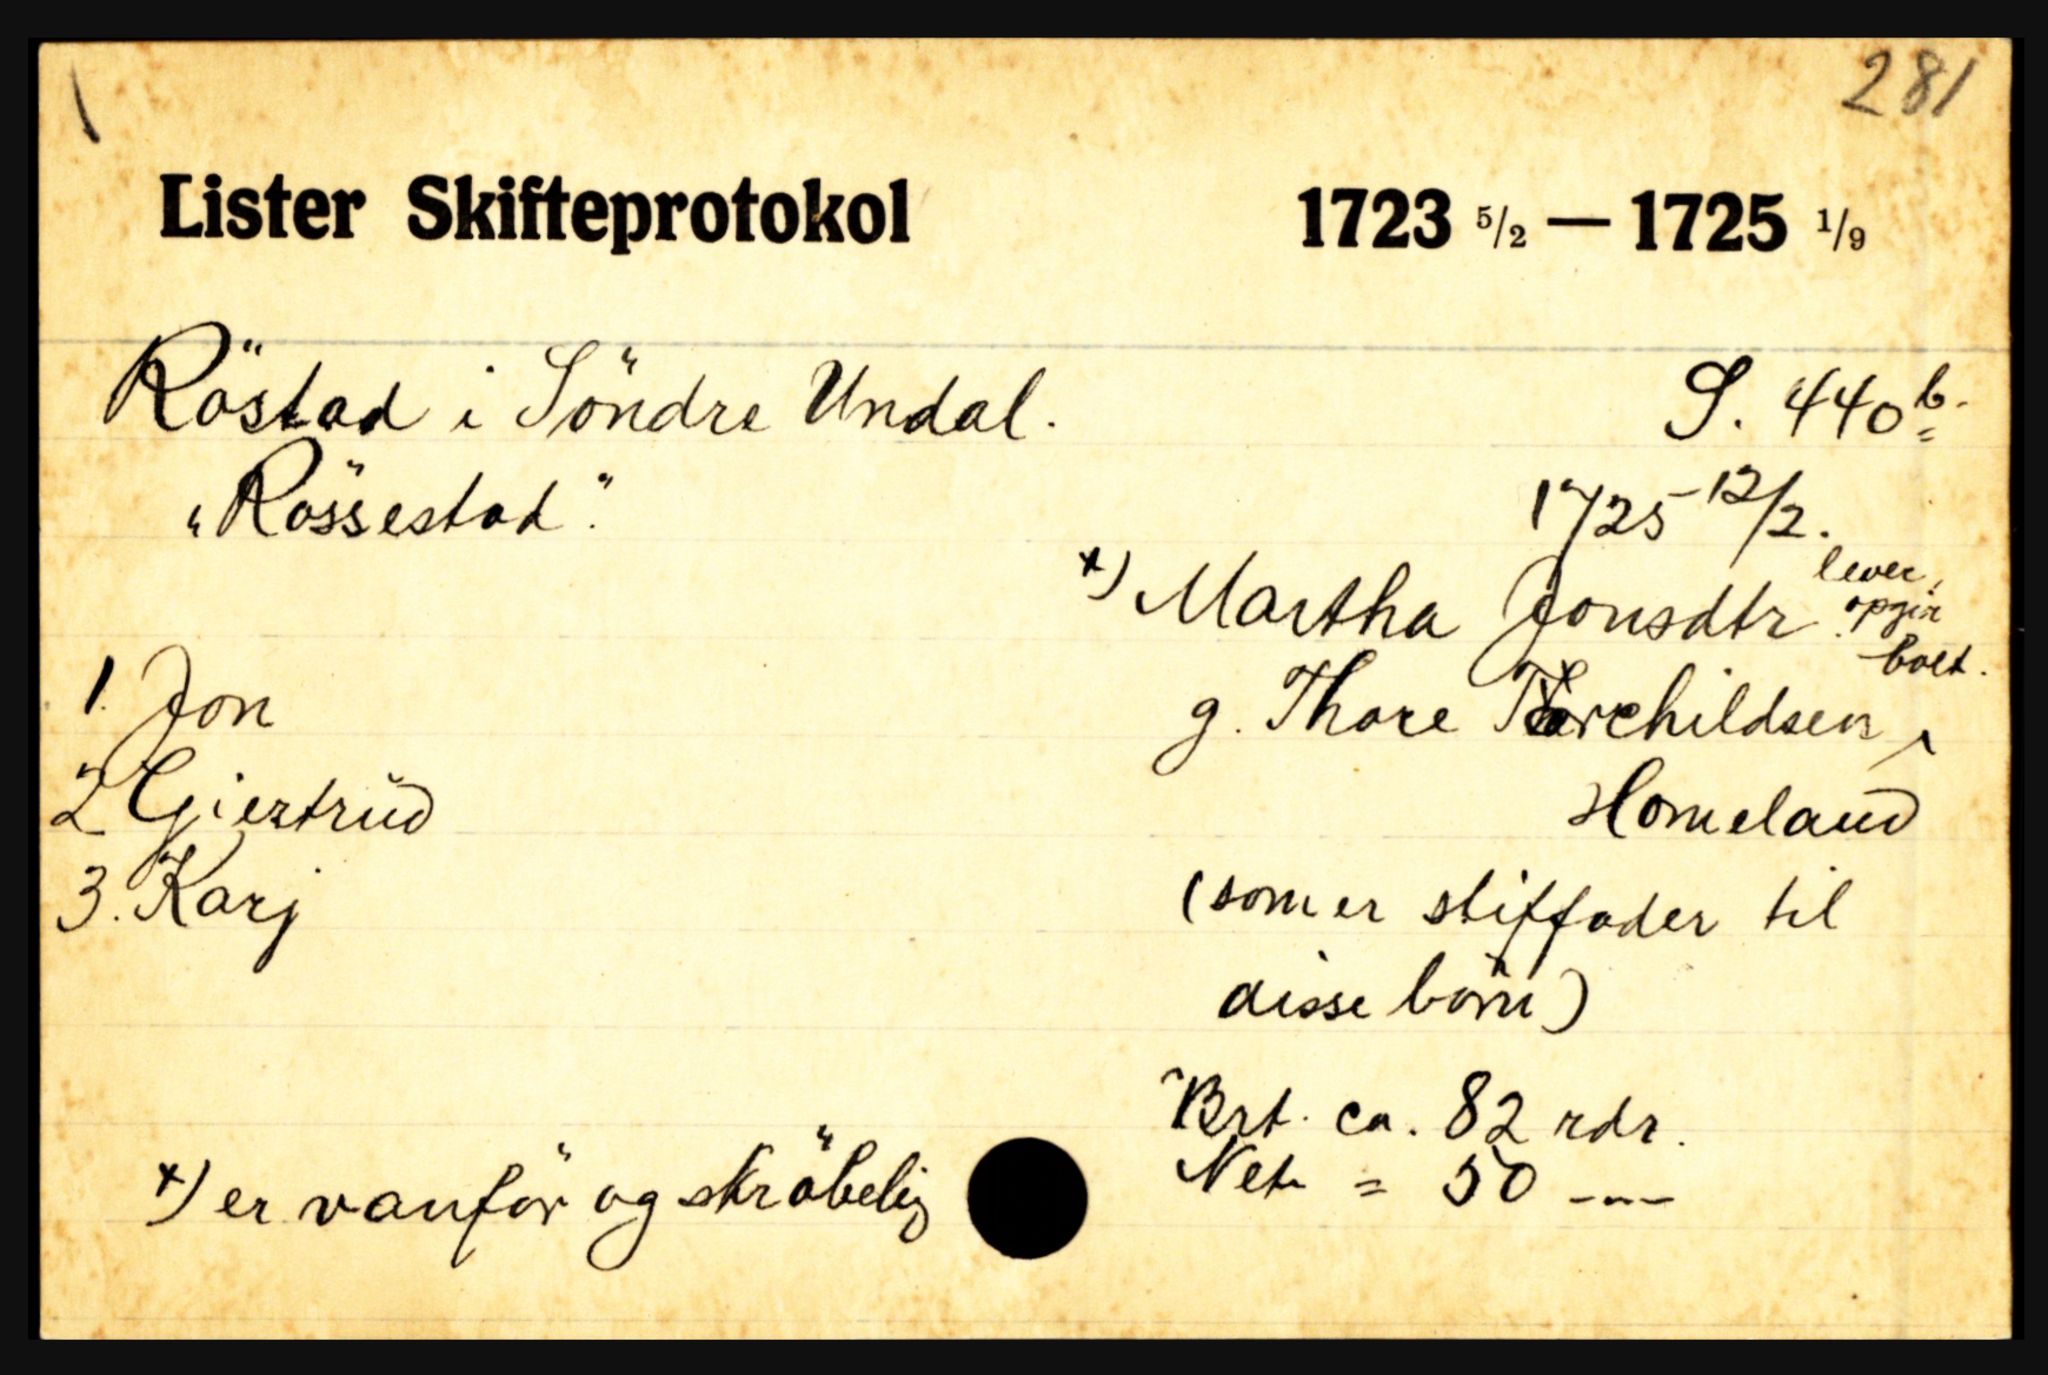 281
Lister Skifteprotokol 1723 5/2 — 1725 1/9
Röstad i Söndre Undal. S. 440 b.
"Rössestad". 1725 12/2.
x) Martha Jonsdtr lever, opgir boet.
1. Jon g. Thore Torchildsen,
2 Giertrüd Homeland
3. Karj (som er stiffader til
disse börn)
Brt. ca. 82 rdr.
x) er vanför og skröbelig Net. = 50 -"-